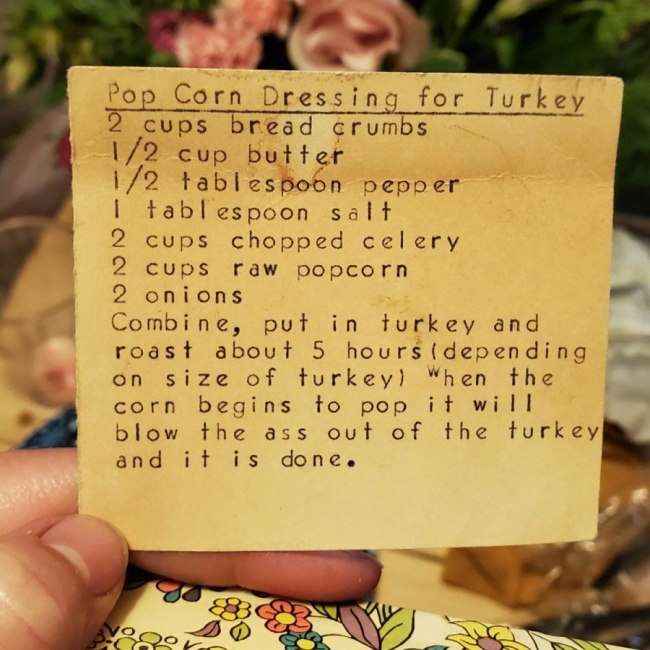 Pop Corn Dressing for Turkey
2 cups bread crumbs
1/2 cup butter
1/2 tablespoon pepper
1 tablespoon salt
2 cups chopped celery
2 cups raw popcorn
2 onions
Combine, put in turkey and
roast about 5 hours(depending
on size of turkey) When the
corn begins to pop it will
blow the ass out of the turkey
and it is done.